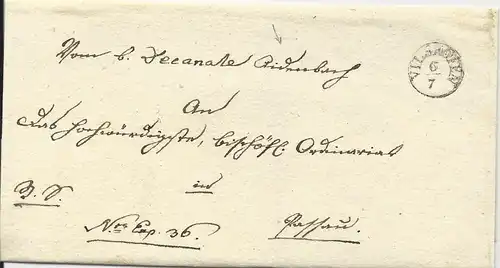 Vom b. Decanate Aidenbach
VILSHOFEN
6
7
An
Das hochwürdigste, bischöfl: Ordinariat
in
R. S.
Nro Exp. 36.
Passau.